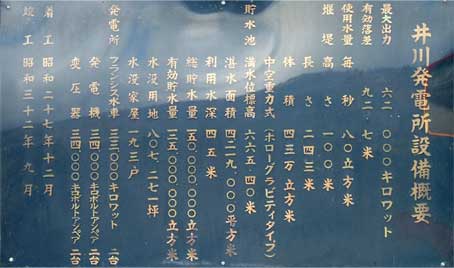 井川発電所設備概要
最大出力 六二、〇〇〇キロワット
有効落差 九二、七米
使用水量 毎秒 八〇立方米
堰堤 高さ 一〇〇米
長さ 二四三米
体積 四三万立方米
中空重力式(ホローグラビティタイプ)
貯水池 満水位標高 六六五、四〇米
湛水面積 四二一九、〇〇〇平方米
利用水深 四五米
総貯水量 一五〇、〇〇〇、〇〇〇立方米
有効貯水量 一二五、〇〇〇、〇〇〇立方米
水没用地 八〇七、二七一坪
水没家屋 一九三戸
発電所 フランシス水車 三三〇〇〇キロワット 二台
発電機 三四〇〇〇キロボルトアンペア 二台
変圧器 三四〇〇〇キロボルトアンペア 二台
着工 昭和二十七年十二月
竣工 昭和三十二年九月